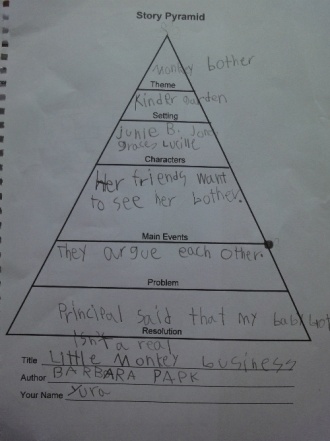 Story Pyramid
Monkey bother
Theme
Kinder garden
Setting
Junie B. Jones
graces Lucille
Characters
Her friends want
to see her bother.
Main Events
They argue each other.
Problem
Principal said that my baby bot
Resolution
Isn't a real
Title Little Monkey business
Author BARBARA PARK
Your Name Yura